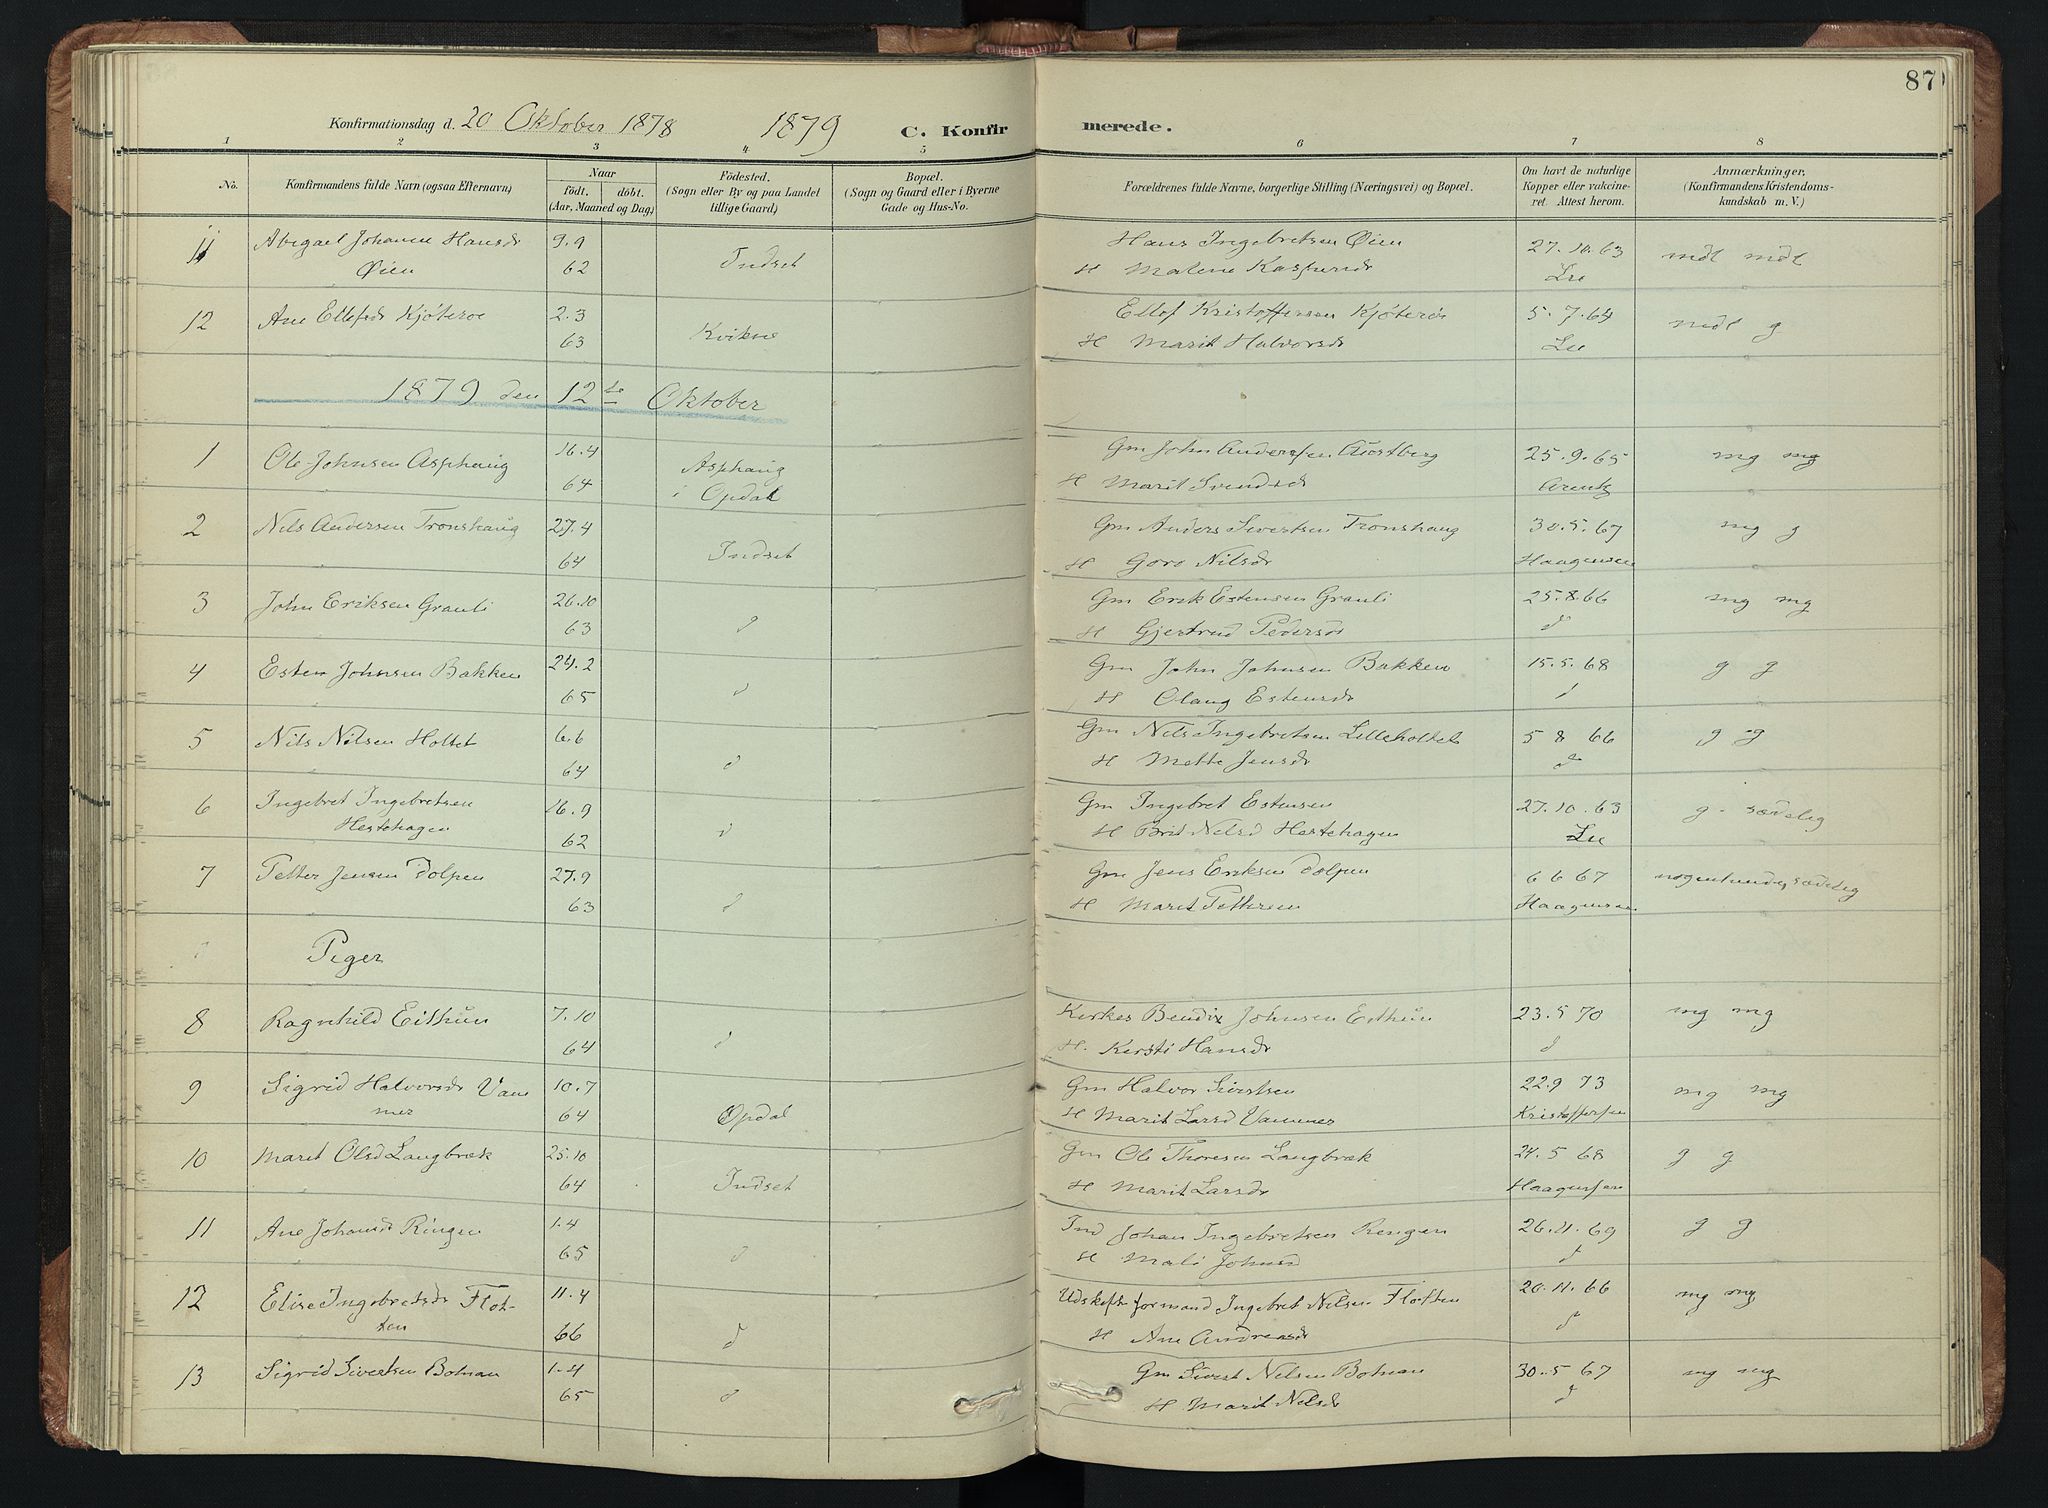 87
Konfirmationsdag d. 20 Oktober 1878 1879 C. Konfirmerede.
1 2 3 4 5 6 7 8
No. Konfirmandens fulde Navn (ogsaa Efternavn) Naar födt. döbt. (Aar, Maaned og Dag) Födested. (Sogn eller By og paa Landet tillige Gaard) Bopæl. (Sogn og Gaard eller i Byerne Gade og Hus-No. Forældrenes fulde Navne, borgerlige Stilling (Næringsvei) og Bopæl. Om havt de naturlige Kopper eller vakcineret. Attest herom. Anmærkninger, (Konfirmandens Kristendomskundskab m. V.)
11 Abigael Johanne Hansdr 9.9 Indset Hans Ingebretsen Øien 27.10.63 mdt mdt
Øien 62 H Malene Kaspersdr Lie
12 Ane Ellefsdr Kjøterøe 2.3 Kvikne Ellef Kristoffersen Kjøterøe 5.7.64 mdt g
63 H Marit Halvorsdr Lie
1879 den 12te Oktober
1 Ole Johnsen Asphaug 16.4 Asphaug Gm John Anderssen Austberg 25.9.65 mg mg
64 i Opdal H Marit Svendsdr Arentz
2 Nils Andersen Tronshaug 27.4 Gm Anders Sivertsen Tronshaug 30.5.67 mg g
64 Indset H Goro Nilsdr Haagensen
3 John Eriksen Granli 26.10 Gm Erik Estensen Granli 25.8.66 mg mg
63 d H Gjertrud Pedersdr d
4 Esten Johnsen Bakken 24.2 Gm John Johnsen Bakken 15.5.68 g g
65 d H Olaug Estensdr d
5 Nils Nilsen Holtet 6.6 Gm Nils Ingebretsen Lilleholtet 5 8 66 g g
64 d H Mette Jensdr d
6 Ingebret Ingebretsen 16.9 Gm Ingebret Estensen 27.10.63 g. sædelig
Hestehagen 62 d H Brit Nilsd Hestehagen Lie
7 Petter Jensen Dolpen 27.9 Gm Jens Eriksen Dolpen 6 6 67 nogenlunde, sædelig
63 d H Marit Pettersen Haagensen
Piger
8 Ragnhild Eithun 7.10 Kirkes Bendix Johnsen Eithun 23.5 70 mg mg
64 d H. Kersti Hansdr d
9 Sigrid Halvorsdr Vam 10.7 Gm Halvor Sivertsen 22.9 73 mg mg
mer 64 Opdal H Marit Larsd Vammer Kristoffersen
10 Marit Olsd Langbræk 25.10 Gm Ole Thoresen Langbræk 24.5 68 g g
64 Indset H Marit Larsdr Haagensen
11 Ane Johansdr Ringen 1.4 Ind Johan Ingebretsen Rengen 26.11.69 g g
65 d H Mali Johnsd d
12 Elise Ingebretsdr Flot- 11.4 Udskiftsformand Ingebret Nilsen Flotten 20.11.66 mg mg
ten 66 d H Ane Andreasdr d
13 Sigrid Sivertsen Bolman 1.4 Gm Sivert Nilsen Bolman 30.5 67 mg mg
65 d H Marit Nilsdr d